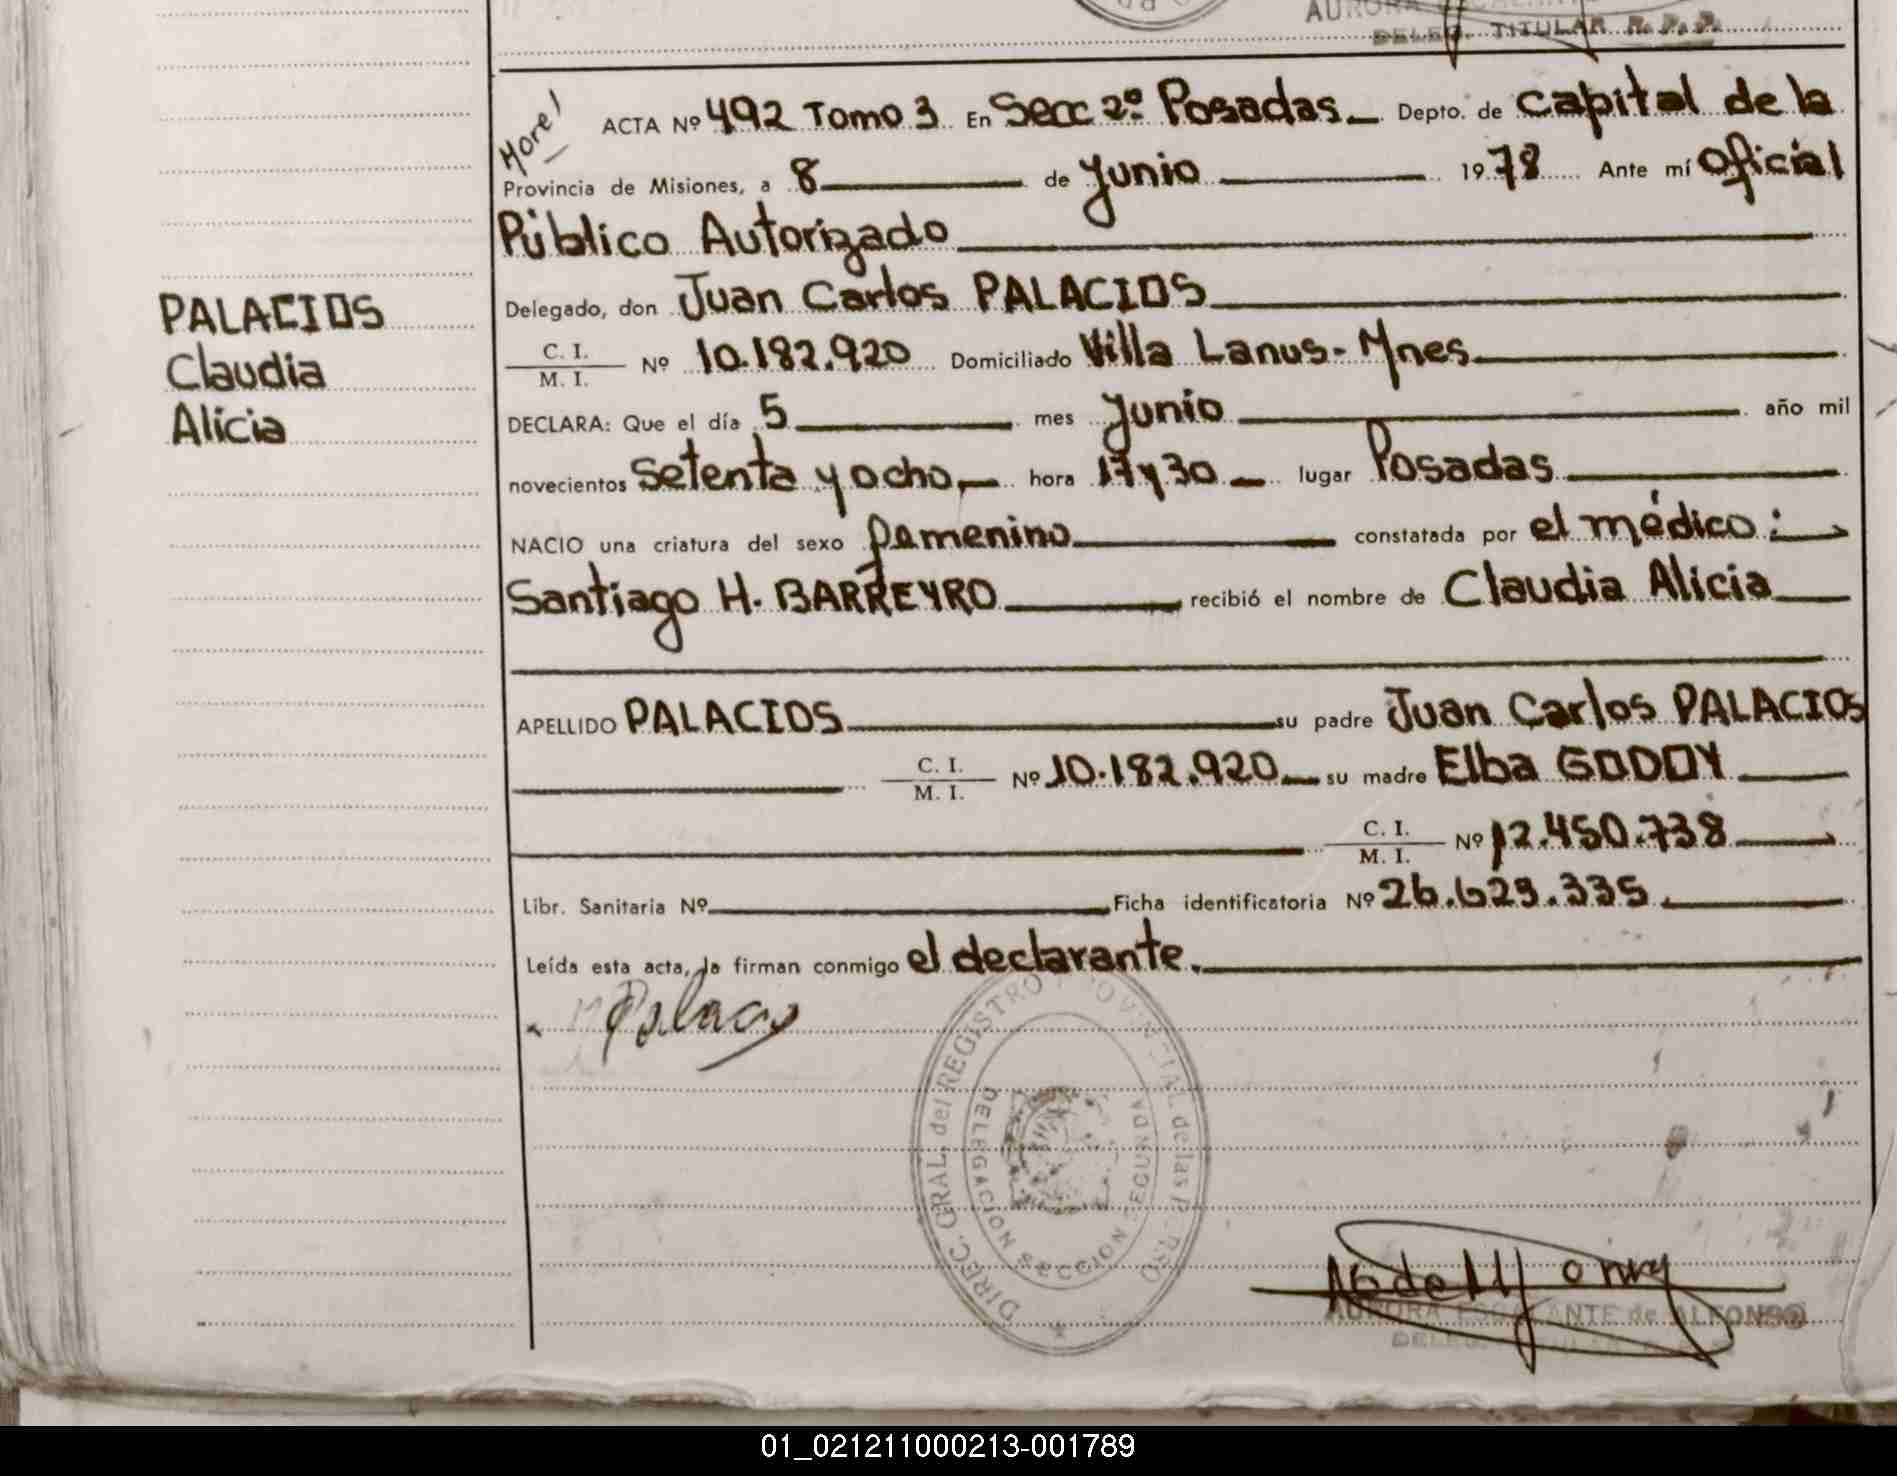 AURORA ESCALANTE
DELEG. TITULAR R. P. P.
More!
ACTA Nº 492 Tomo 3 En Secc 2º Posadas Depto. de Capital de la
Provincia de Misiones, a 8 de Junio 1978 Ante mí Oficial
Público Autorizado
Delegado, don Juan Carlos PALACIOS
C. I.
M. I. Nº 10.182.920 Domiciliado Villa Lanus- Mnes
DECLARA: Que el día 5 mes Junio año mil
novecientos setenta y ocho, hora 17 y 30 lugar Posadas
NACIO una criatura del sexo femenino constatada por el médico:
Santiago H. BARREYRO recibió el nombre de Claudia Alicia
APELLIDO PALACIOS su padre Juan Carlos PALACIOS
C. I.
M. I. Nº 10.182.920 su madre Elba GODOY
C. I.
M. I. Nº 12.450.738
Libr. Sanitaria Nº Ficha identificatoria Nº 26.629.335
Leída esta acta, la firman conmigo el declarante.
PALACIOS
Claudia
Alicia
Palacios
DIREC. GRAL. del REGISTRO PROVINCIAL de las PERSO
DELEGACION SECCION SEGUNDA
AURORA ESCALANTE de ALFONSO
DELEG. TITULAR
01_021211000213-001789